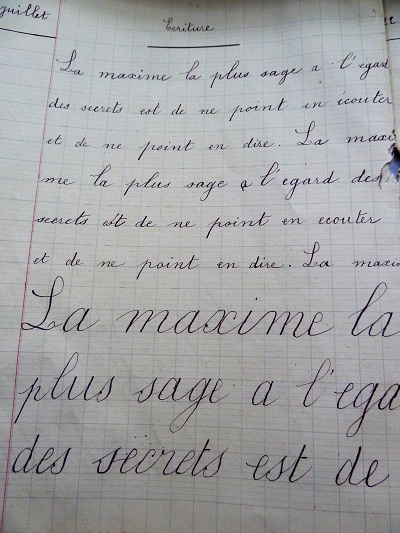 juillet
Ecriture
La maxime la plus sage a l'egard
des secrets est de ne point en écouter
et de ne point en dire. La maxi
me la plus sage a l'egard des
secrets est de ne point en ecouter
et de ne point en dire. La maxim
La maxime la
plus sage a l'ega
des secrets est de